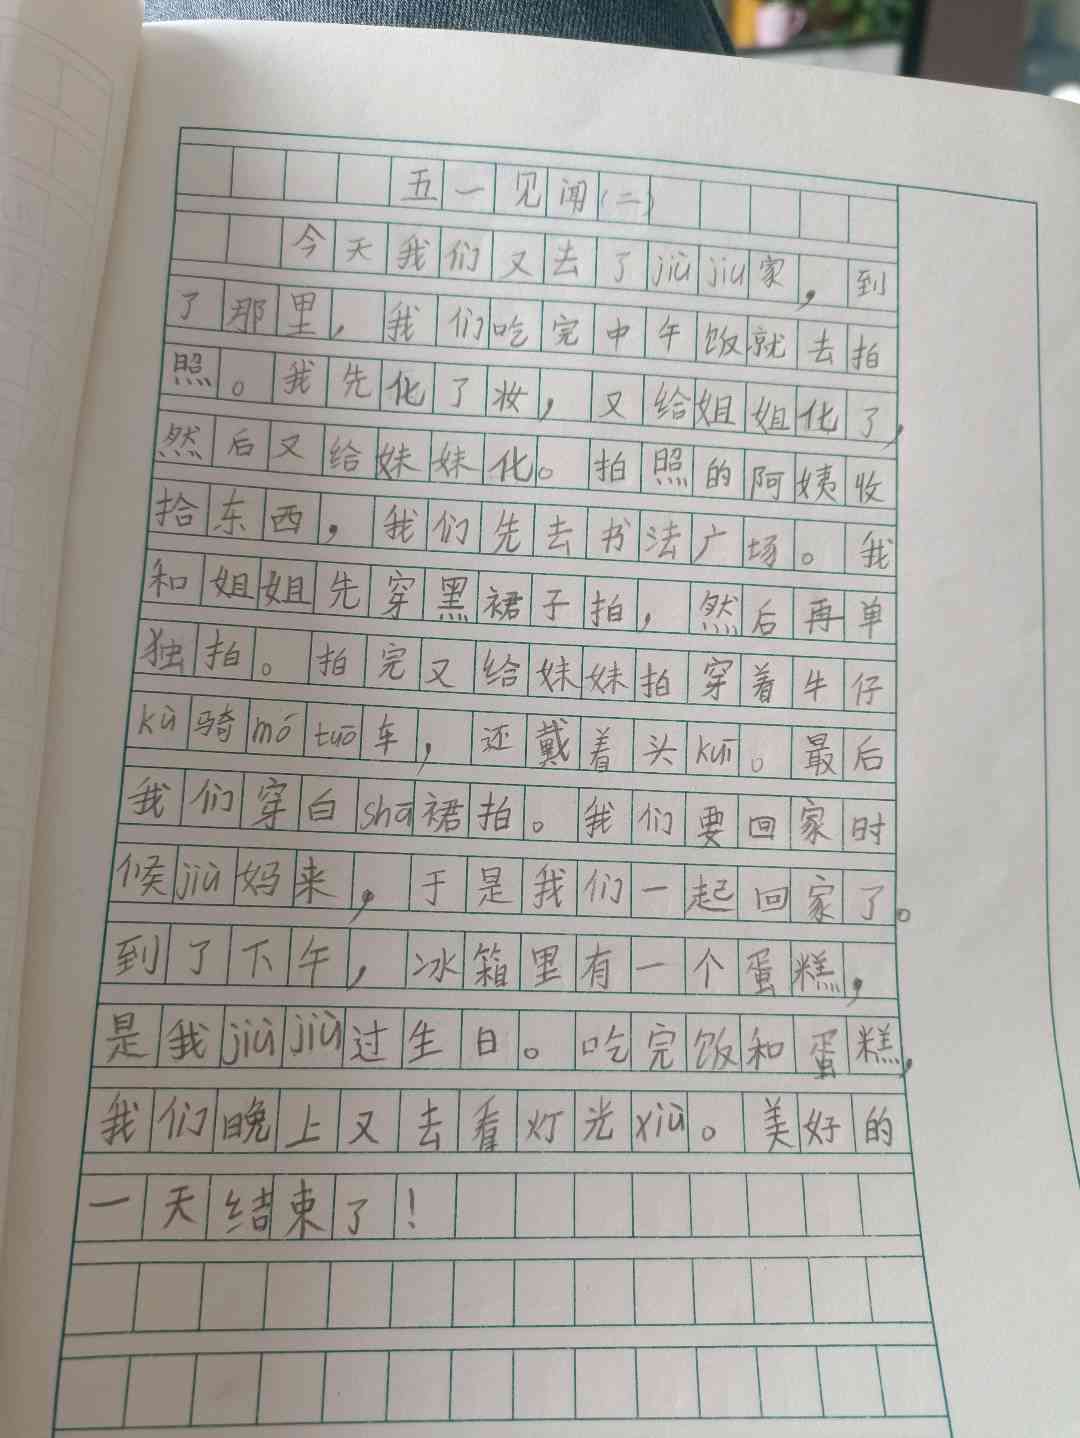 五一见闻(二)
今天我们又去了jiù jiu家，到
了那里，我们吃完中午饭就去拍
照。我先化了妆，又给姐姐化了，
然后又给妹妹化。拍照的阿姨收
拾东西，我们先去书法广场。我
和姐姐先穿黑裙子拍，然后再单
独拍。拍完又给妹妹拍穿着牛仔
kù骑mó tuō车，还戴着头kuī。最后
我们穿白shā裙拍。我们要回家时
候jiù妈来，于是我们一起回家了。
到了下午，冰箱里有一个蛋糕，
是我jiù jiù过生日。吃完饭和蛋糕，
我们晚上又去看灯光xiù。美好的
一天结束了！